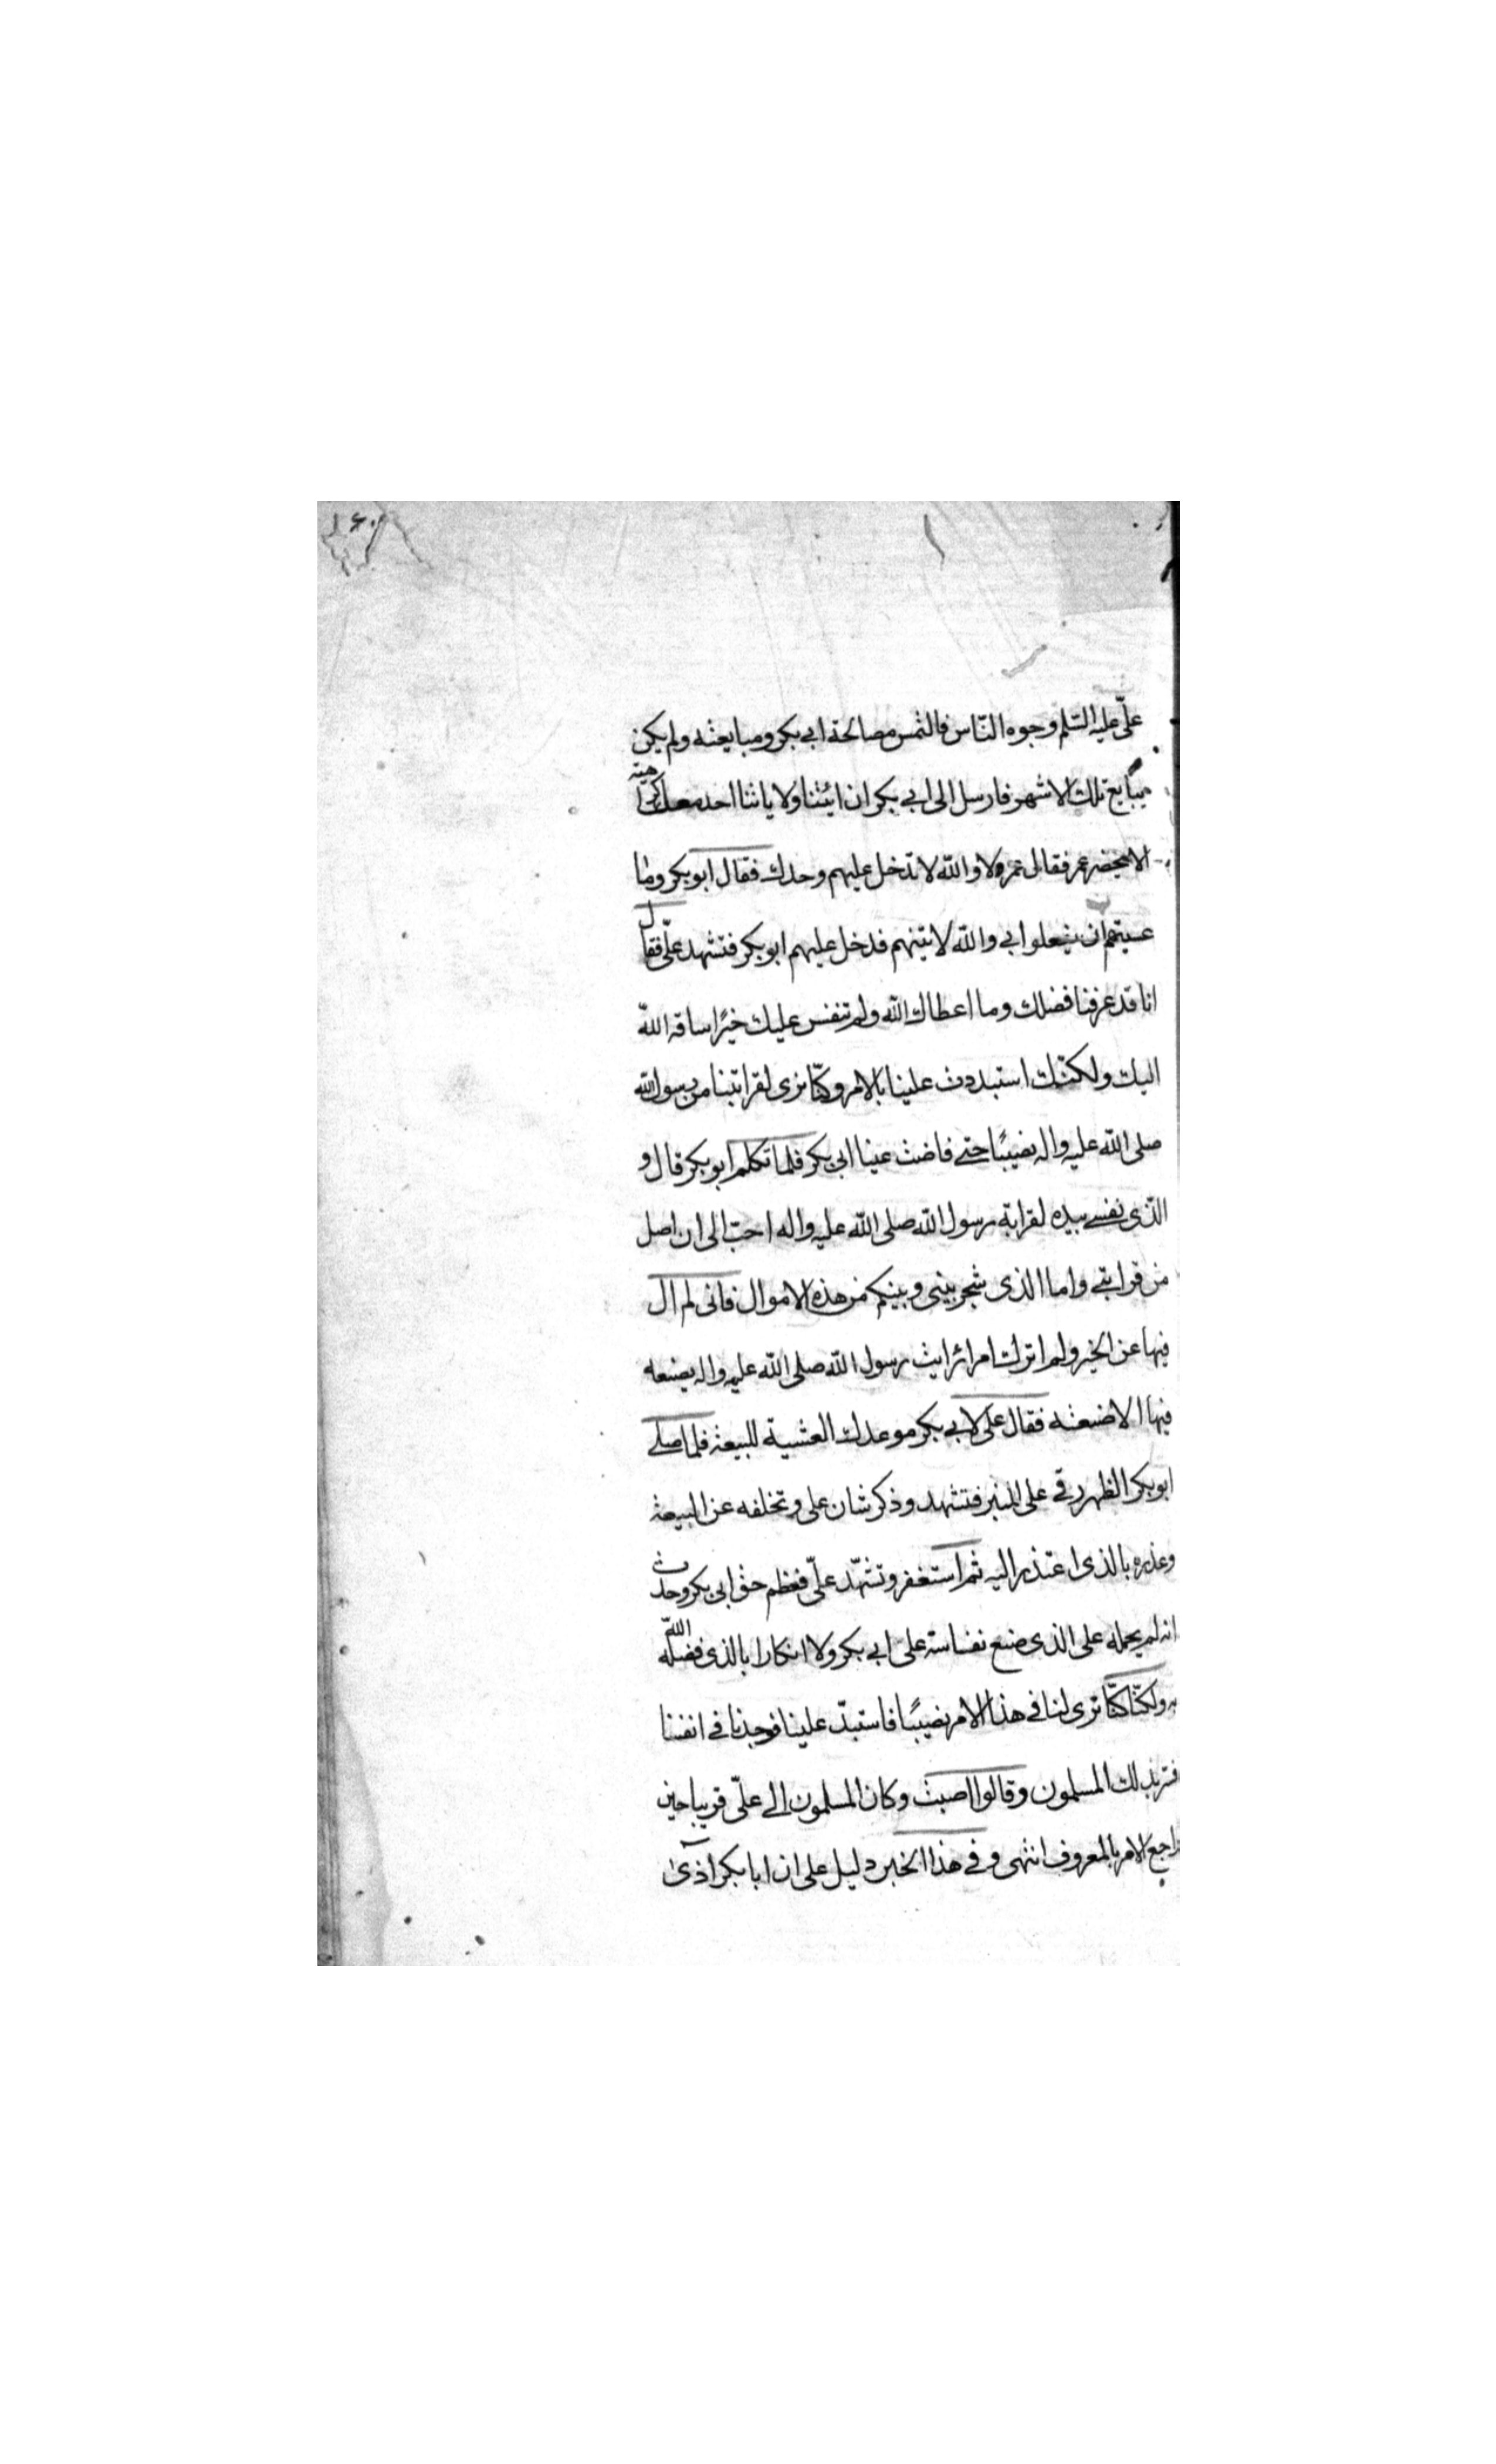 ١٦٠
علّى عليه السّلم وجوه النّاس فالتمس مصالحة ابى بكر ومبايعته ولم يكن
يبايع تلك الاشهر فارسل الى ابي بكر ان ائتنا ولا ياتنا احد معك كراهيّة
لامحضر عمر فقال عمر لا والله لا تدخل عليهم وحدك فقال ابو بكر وما
عسيتهم ان يفعلوا بي والله لاتينهم فدخل عليهم ابو بكر فتشهد علّى فقال
انا قد عرفنا فضلك وما اعطاك الله ولم تنفس عليك خيرًا ساقه الله
اليك ولكنّك استبددت علينا بالامر وكنّا نرى لقرابتنا من رسول الله
صلى الله عليه واله نصيبًا حتى فاضت عينا ابى بكر فلما تكلم ابو بكر قال و
الذّى نفسى بيده لقرابة رسول الله صلى الله عليه واله احبّ الى ان اصل
من قرابتى واما الذى شجر بينى وبينكم من هذه الاموال فانى لم ال
فيها عن الخير ولم اترك امرا رايت رسول الله صلى الله عليه واله يصنعه
فيها الا صنعته فقال على لابي بكر موعدك العشية للبيعة فلما صلى
ابو بكر الظهر رقى على المنبر فتشهد وذكر شان على وتخلفه عن البيعة
وعذره بالذى اعتذر اليه ثم استغفر وتشهّد علّى فعظم حق ابى بكر وحدث
انه لم يحمله على الذى صنع نفاسة على ابي بكر ولا انكارا بالذى فضله الله
به ولكنّا كنّا نرى لنا فى هذا الامر نصيبًا فاستبدّ علينا فوجدنا فى انفسنا
فسر بذلك المسلمون وقالوا اصبت وكان المسلمون الى علّى قريبا حين
راجع الامر بالمعروف انتهى وفى هذا الخبر دليل على ان ابا بكر آذى